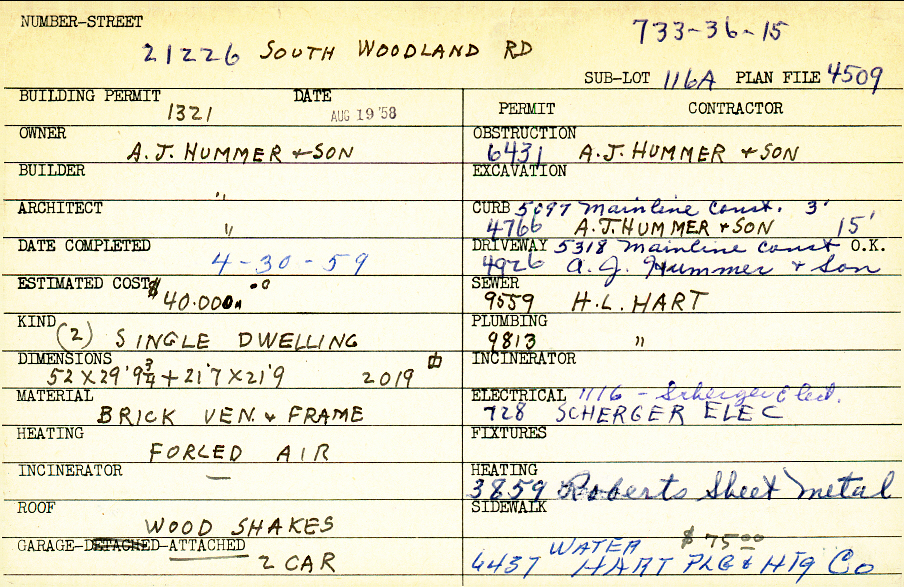 NUMBER-STREET
733-36-15
21226 SOUTH WOODLAND RD
SUB-LOT 116A PLAN FILE 4509
BUILDING PERMIT DATE
1321 AUG 19 '58
PERMIT CONTRACTOR
OWNER
A.J. HUMMER & SON
OBSTRUCTION
6431 A.J. HUMMER & SON
BUILDER
"
EXCAVATION
ARCHITECT
"
CURB 5097 Mainline Const. 3'
4766 A.J. HUMMER & SON 15'
DATE COMPLETED
4-30-59
DRIVEWAY 5318 Mainline Const O.K.
4926 A. J. Hummer & Son
ESTIMATED COST
$40.000.00
SEWER
9559 H.L. HART
KIND
(2) SINGLE DWELLING
PLUMBING
9813 "
DIMENSIONS
52 X 29'9 3/4 + 21'7 X 21'9 2019
INCINERATOR
MATERIAL
BRICK VEN. & FRAME
ELECTRICAL 1116 - Scherger Elect.
728 SCHERGER ELEC
HEATING
FORCED AIR
FIXTURES
INCINERATOR
—
HEATING
3859 Roberts Sheet Metal
ROOF
WOOD SHAKES
SIDEWALK
GARAGE-DETACHED-ATTACHED
2 CAR
WATER $75.00
6437 HART PLG & HTG CO